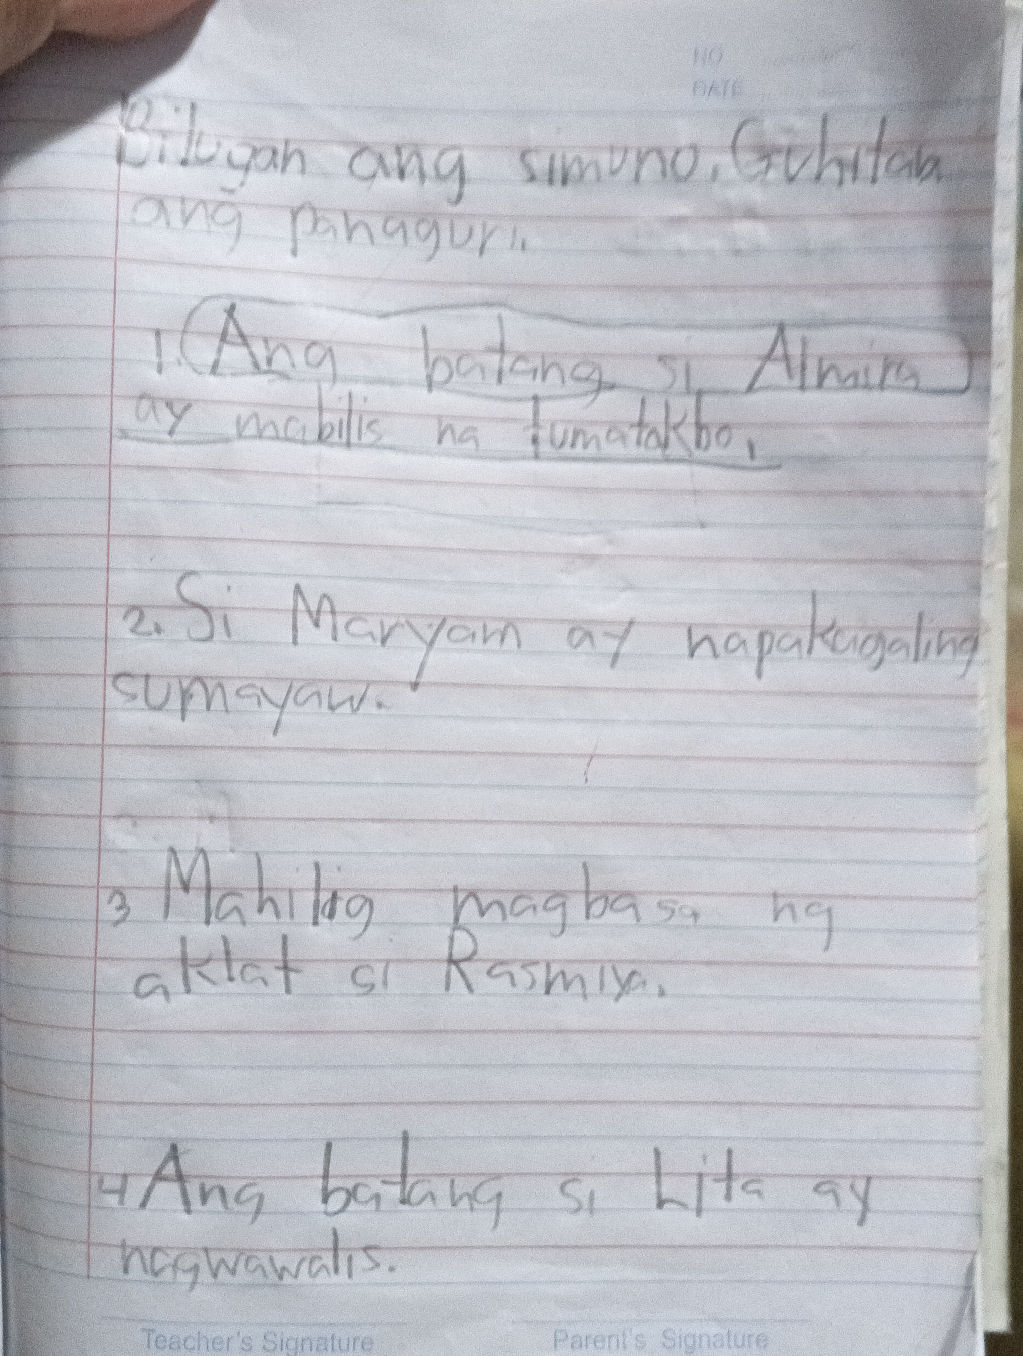 NO
DATE
Bilugan ang simuno. Guhitan
ang panaguri.
1. Ang batang si Almira
ay mabilis na tumatakbo.
2. Si Maryam ay napakagaling
sumayaw.
3 Mahilig magbasa ng
aklat si Rasmiya.
4 Ang batang si Lita ay
nagwawalis.
Teacher's Signature Parent's Signature